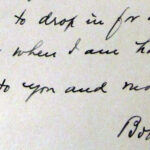 to drop in for a
when I am ho
to you and mo
Boo